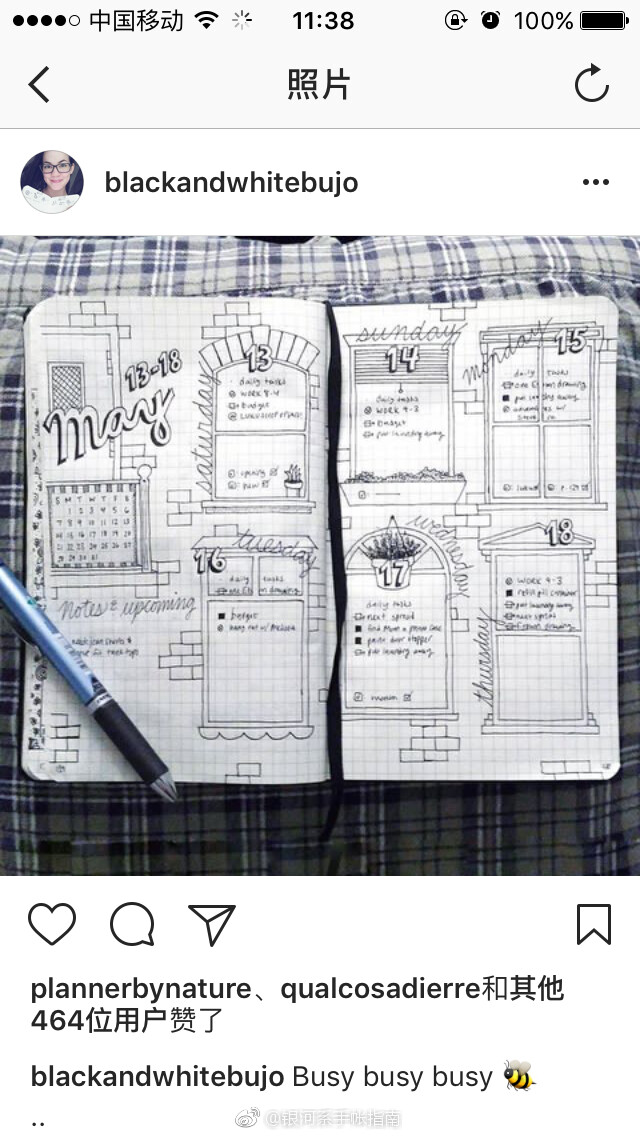 中国移动 11:38 100%
照片
blackandwhitebujo
13-18
May
S M T W T F S
1 2 3 4 5 6
7 8 9 10 11 12 13
14 15 16 17 18 19 20
21 22 23 24 25 26 27
28 29 30 31
Notes & upcoming
saturday
13
daily tasks
work 8-4
budget
opening
tuesday
16
daily tasks
drawing
budget
hang out w/ Melissa
sunday
14
daily tasks
WORK 9-3
Budget
put laundry away
monday
15
daily tasks
drawing
wednesday
17
daily tasks
next spread
paint door stopper
put laundry away
thursday
18
WORK 9-3
refill pill container
put laundry away
next spread
plannerbynature、qualcosadierre和其他
464位用户赞了
blackandwhitebujo Busy busy busy 🐝
..
@银河系手帐指南